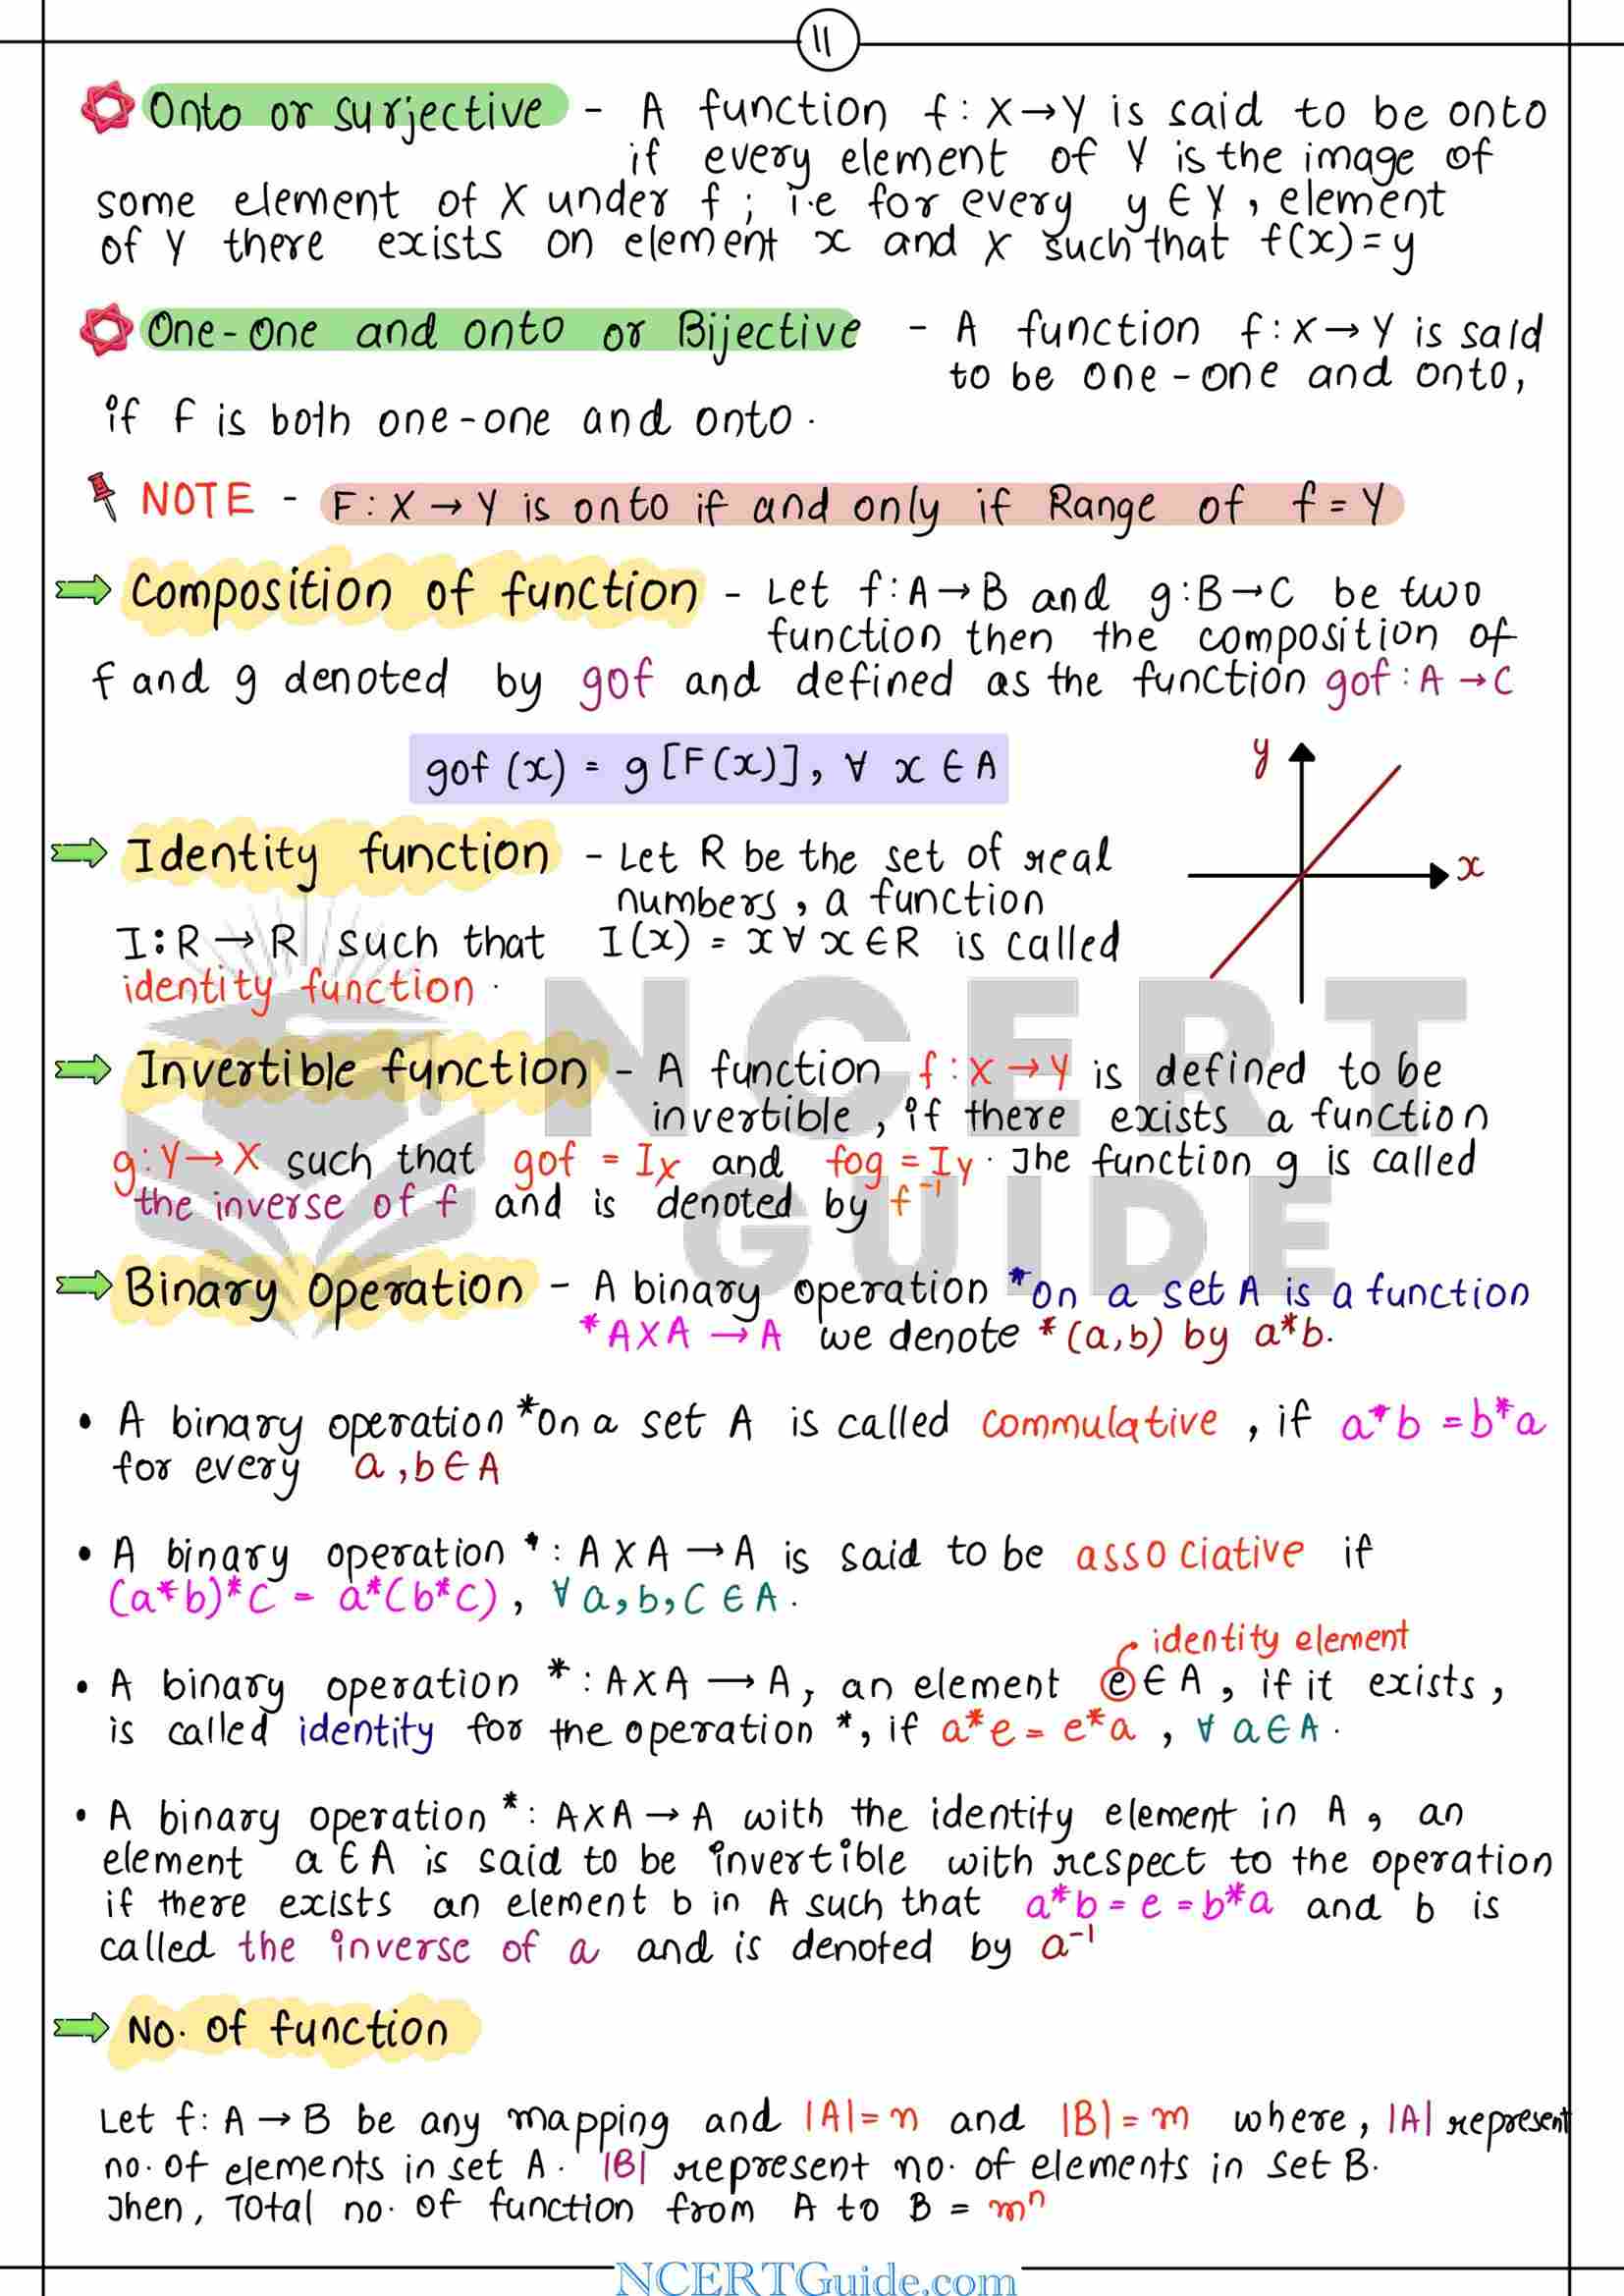 11
Onto or surjective - A function f: X→Y is said to be onto
if every element of Y is the image of
some element of X under f ; i.e for every y ∈ Y , element
of Y there exists on element x and X such that f(x)=y
One-One and onto or Bijective - A function f: X→Y is said
to be one-one and onto,
if F is both one-one and onto.
NOTE - F: X→Y is onto if and only if Range of f = Y
Composition of function - Let f:A→B and g:B→C be two
function then the composition of
f and g denoted by gof and defined as the function gof : A→C
gof (x) = g [F(x)], ∀ x ∈ A
y
x
Identity function - Let R be the set of real
numbers, a function
I:R→R such that I(x) = x ∀ x∈R is called
identity function.
NCERT
GUIDE
Invertible function - A function f:X→Y is defined to be
invertible, if there exists a function
g:Y→X such that gof = Ix and fog = Iy. The function g is called
the inverse of f and is denoted by f⁻¹
Binary operation - A binary operation *on a set A is a function
*AXA → A we denote *(a,b) by a*b.
• A binary operation *on a set A is called commulative, if a*b = b*a
for every a,b∈A
• A binary operation * : AXA → A is said to be associative if
(a*b)*C = a*(b*C), ∀ a,b,C ∈ A.
identity element
• A binary operation * : AXA → A, an element e ∈ A, if it exists,
is called identity for the operation *, if a*e = e*a , ∀ a∈A.
• A binary operation * : AXA → A with the identity element in A, an
element a∈A is said to be invertible with respect to the operation
if there exists an element b in A such that a*b = e = b*a and b is
called the inverse of a and is denoted by a⁻¹
No. of function
Let f: A→B be any mapping and |A|=n and |B|=m where, |A| represent
no. of elements in set A. |B| represent no. of elements in set B.
Then, Total no. of function from A to B = mⁿ
NCERTGuide.com